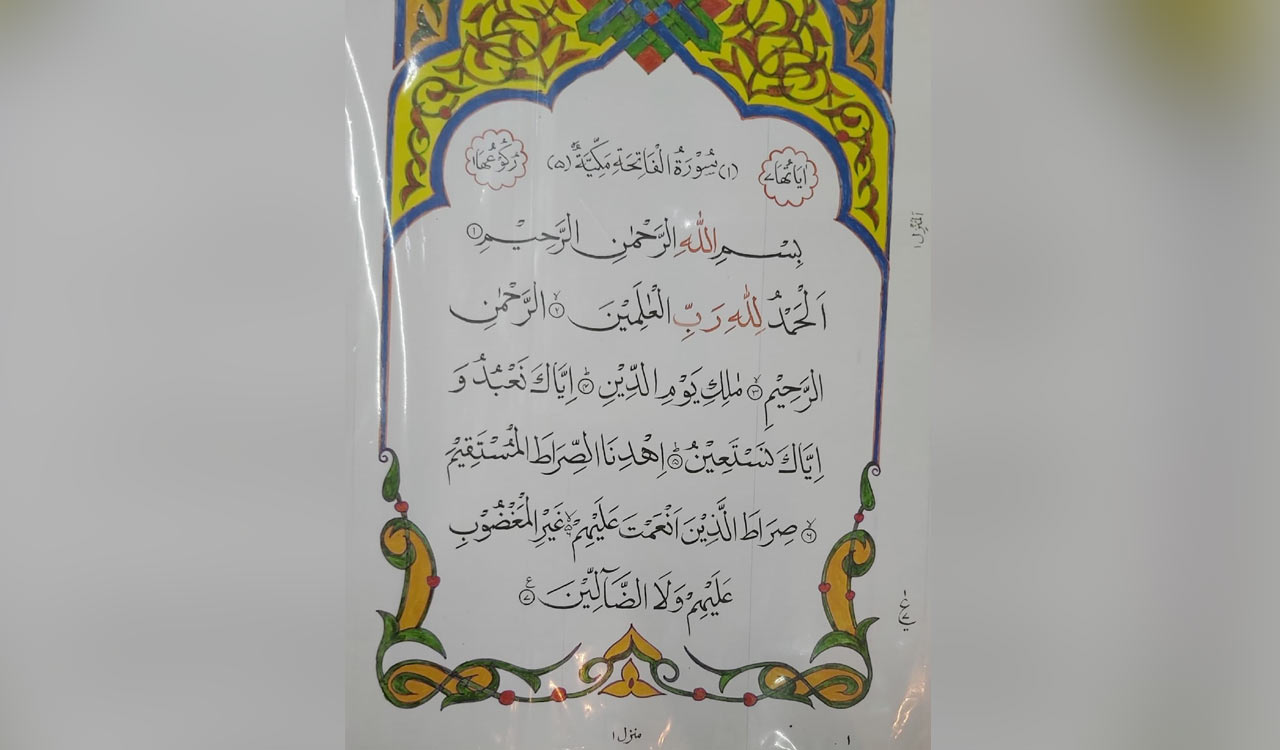 اٰیَاتُهَا ۷
(۱) سُوْرَةُ الْفَاتِحَةِ مَكِّیَّةٌ (۵)
رُكُوْعُهَا ۱
بِسْمِ اللّٰهِ الرَّحْمٰنِ الرَّحِیْمِ ۱
اَلْحَمْدُ لِلّٰهِ رَبِّ الْعٰلَمِیْنَ ۙ۲ الرَّحْمٰنِ
الرَّحِیْمِ ۙ۳ مٰلِكِ یَوْمِ الدِّیْنِ ؕ۴ اِیَّاكَ نَعْبُدُ وَ
اِیَّاكَ نَسْتَعِیْنُ ؕ۵ اِهْدِنَا الصِّرَاطَ الْمُسْتَقِیْمَ
ۙ۶ صِرَاطَ الَّذِیْنَ اَنْعَمْتَ عَلَیْهِمْ ۙ۬ۦ غَیْرِ الْمَغْضُوْبِ
عَلَیْهِمْ وَلَا الضَّآلِّیْنَ ۷ ع
اَلْمَنْزِل ۱
ع ۱ ۷
منزل ۱
۱